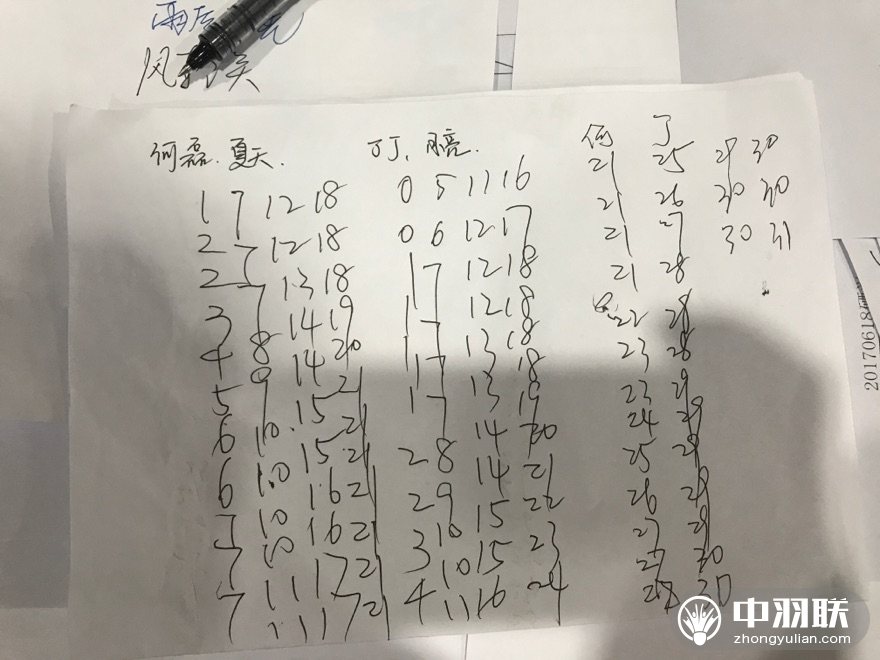 雨后
风
何磊.夏天. 丁丁、月亮. 何 丁
1 7 12 18 0 5 11 16 21 25 29 30
2 7 12 18 0 6 12 17 21 26 30 30
2 7 13 18 1 7 12 18 21 27 30 31
3 8 14 19 1 7 12 18 21 28
4 9 14 20 1 7 13 18 22 28
5 10 15 21 1 7 13 18 23 28
6 10 15 21 2 8 14 19 23 29
6 10 16 21 2 9 14 20 24 29
7 10 16 21 3 10 15 21 25 29
7 11 17 21 10 15 22 26 29
7 11 17 21 4 11 16 23 27 29
24 27 30
30
20170618
中羽联
zhongyulian.com